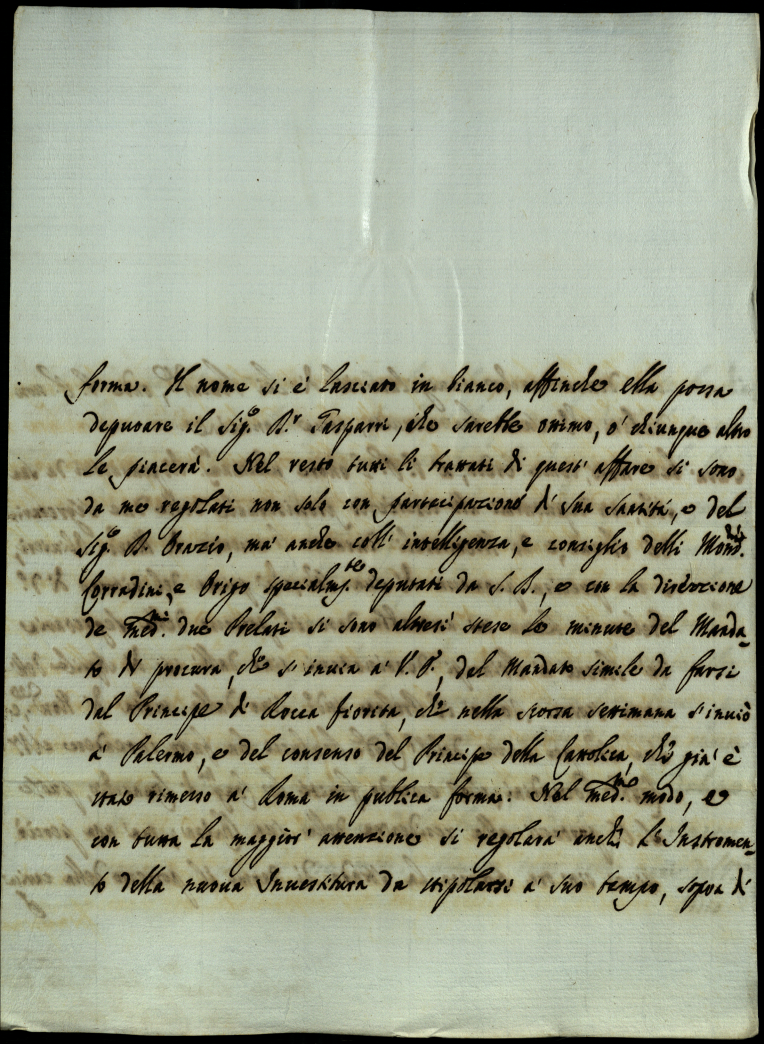 forma. Il nome si è lasciato in bianco, affinche ella possa
deputare il Sig.º D.r Gasparri, che sarebbe ottimo, o' chiunque altro
le piacerà. Nel resto tutti li trattati di quest' affare si sono
da me regolati non solo con partecipazione di Sua Santità, e del
Sig.º D. Orazio, ma' anche coll' intelligenza, e consiglio delli Mons.ri
Corradini, e Origo specialm.te deputati da S. B., e con la direzzione
de med.mi due Prelati si sono altresi stese le minute del Manda-
to di procura, che s' invia à V. P., del Mandato simile da farsi
dal Principe di Rocca fiorita, che nella scorsa settimana s' inviò
à Palermo, e del consenso del Principe della Cattolica, che già è
stato rimesso à Roma in publica forma. Nel med.mo modo, e
con tutta la maggior' attenzione si regolarà anche l' Instromen-
to della nuova Investitura da stipolarsi à suo tempo, sopra di